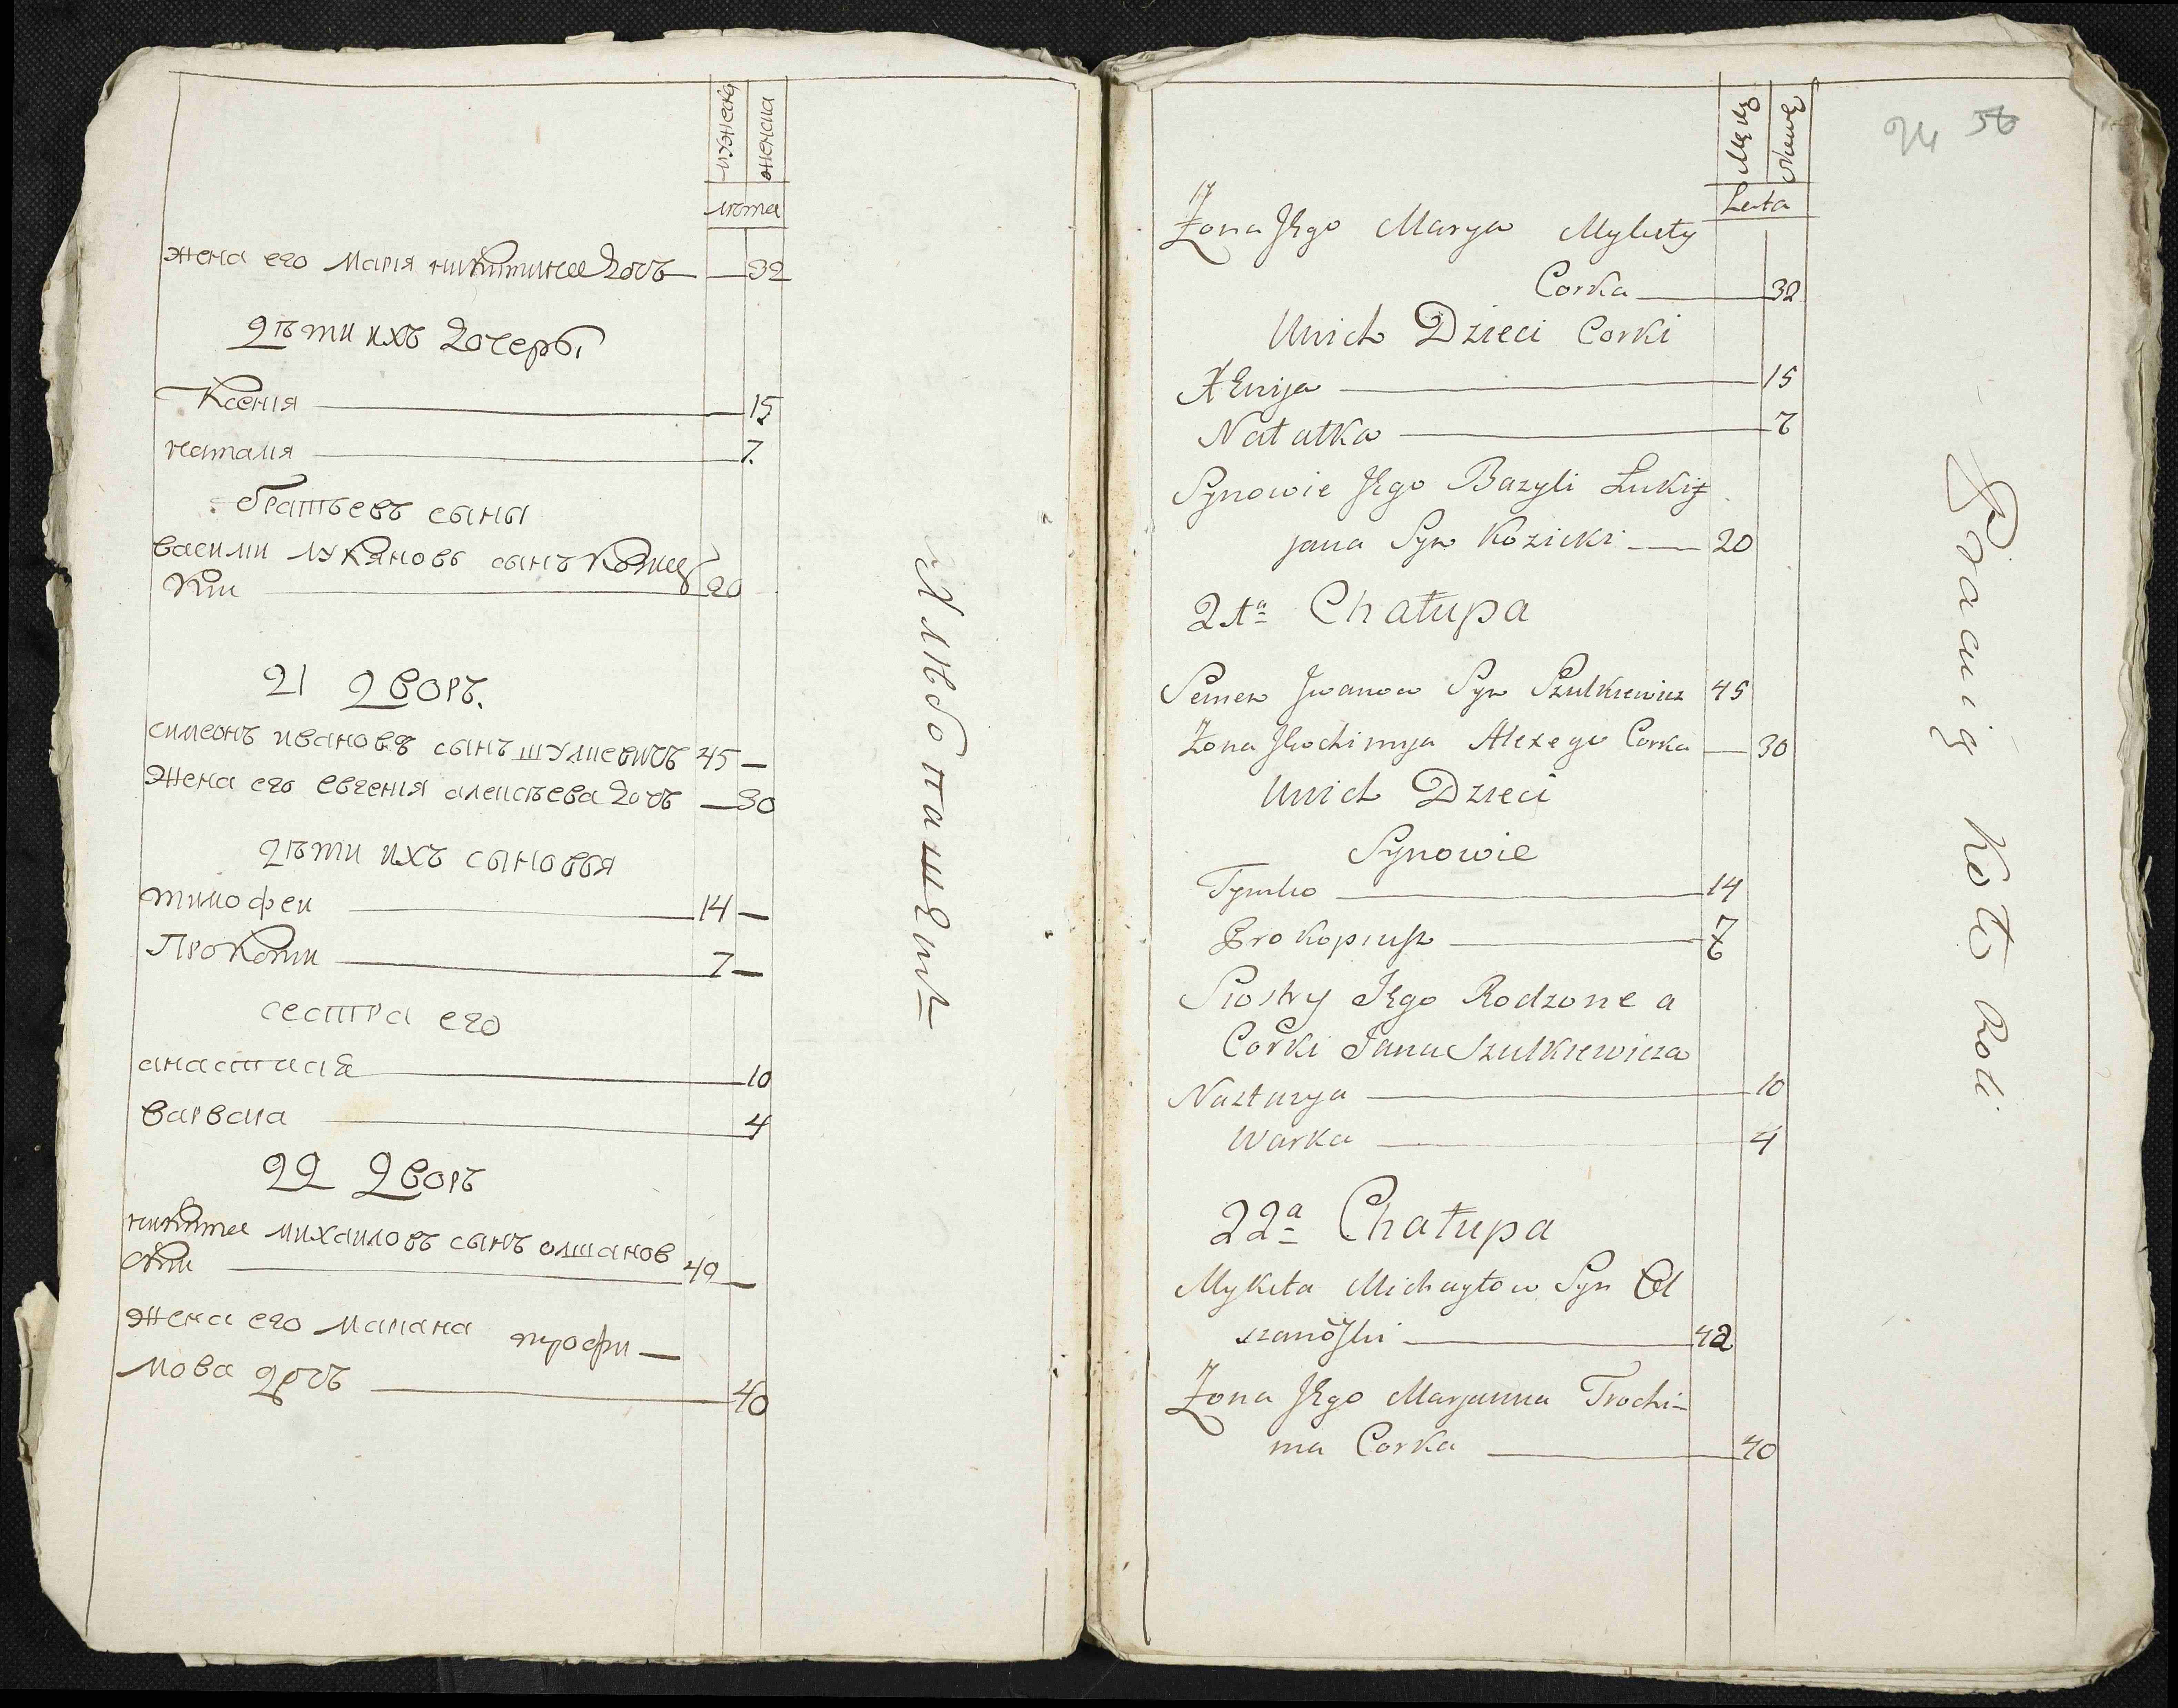 мужеска
женска
лѣта
жена его Марія никитина дочь — 32
дѣти ихъ дочери
Ксенія — 15
наталия — 7
братьевъ сыны
василии лукяновъ сынъ козиц
кии — 20
21 дворъ.
симеонъ ивановъ сынъ шулкевичъ 45 —
жена его евгенія алексѣева дочь — 30
дѣти ихъ сыновья
тимофеи — 14 —
Прокопии — 7 —
сестра его
анастасия — 10
варвара — 4
22 дворъ
никита михаиловъ сынъ олшанов
скии — 42 —
жена его мариана трофи —
мова дочь — 40
Хлѣбопашетъ
24 56
Męzkę
Zenskę
Leta
Żona Jego Marya Mykity
Corka — 32
Unich Dzieci Corki
XEnija — 15
Natałka — 7
Synowie Jego Bazyli Łukij
jana Syn Kozicki — 20
21a Chałupa
Semen Jwanow Syn Szulkiewicz 45
Żona Jewchimya Alexego Corka — 30
Unich Dzieci
Synowie
Tymko — 14
Prokopiusz — 7
Siostry Jego Rodzone a
Corki Jana Szulkiewicza
Nastazya — 10
Warka — 4
22a Chałupa
Mykita Michayłow Syn Ol
szanoski — 42
Żona Jego Maryanna Trochi-
ma Corka — 40
Pracuią koło Roli